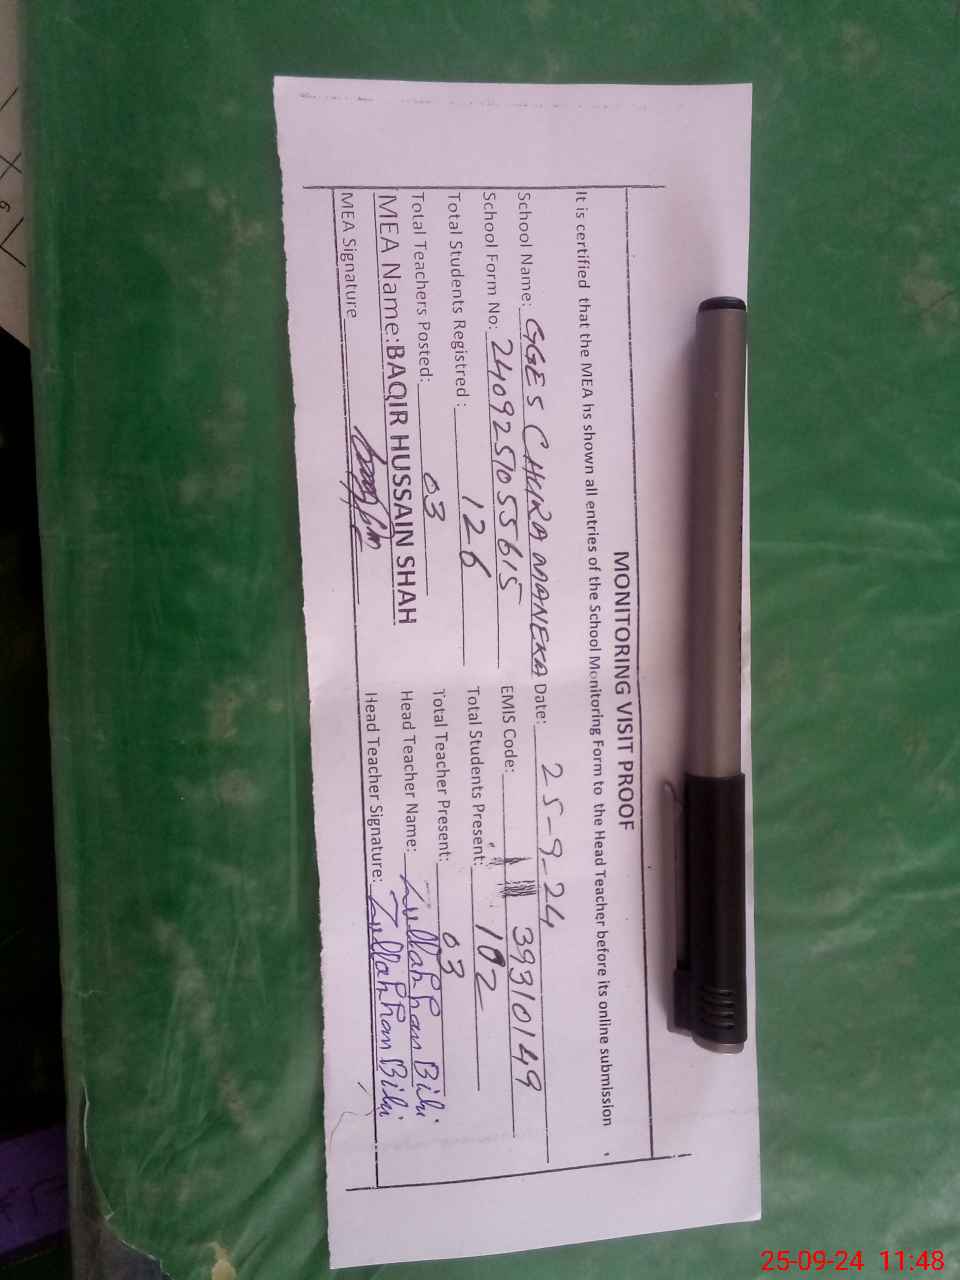 MONITORING VISIT PROOF
It is certified that the MEA hs shown all entries of the School Monitoring Form to the Head Teacher before its online submission
School Name: GGES CHURA MANEKA Date: 25-9-24
School Form No: 24092510556 15 EMIS Code: 39310149
Total Students Registred : 126 Total Students Present: 102
Total Teachers Posted: 03 Total Teacher Present: 03
MEA Name:BAQIR HUSSAIN SHAH Head Teacher Name: Bibi
MEA Signature Head Teacher Signature: Bibi
25-09-24 11:48